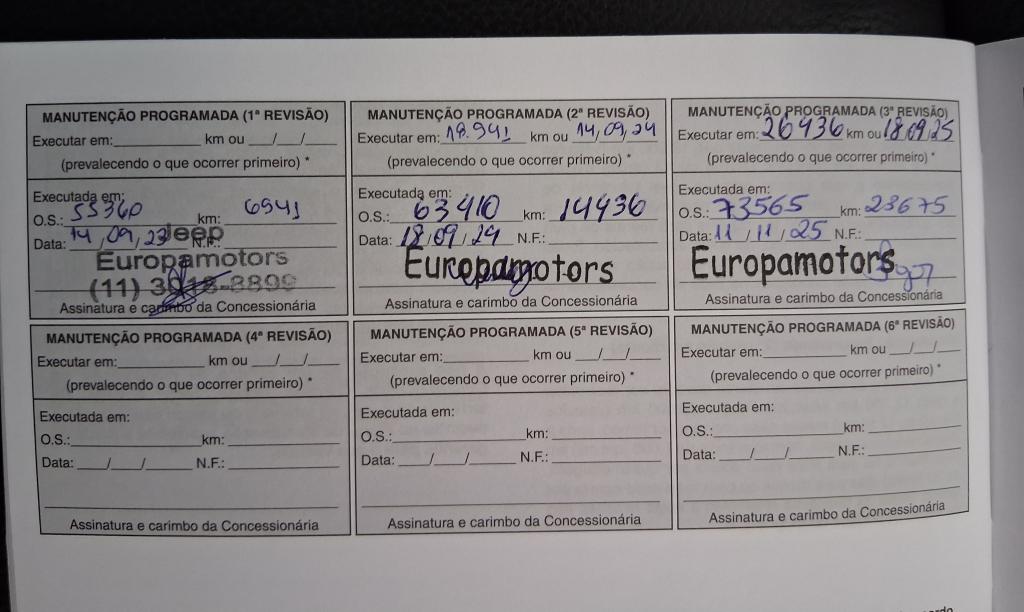 MANUTENÇÃO PROGRAMADA (1ª REVISÃO)
Executar em:__________ km ou ___/___/___
(prevalecendo o que ocorrer primeiro) *
Executada em:
O.S.: 55360 km: 6941
Data: 14/09/23 N.F.:
Jeep
Europamotors
(11)
Assinatura e carimbo da Concessionária
MANUTENÇÃO PROGRAMADA (2ª REVISÃO)
Executar em: 18.941 km ou 14/09/24
(prevalecendo o que ocorrer primeiro) *
Executada em:
O.S.: 63410 km: 14436
Data: 18/09/24 N.F.:
Europamotors
Assinatura e carimbo da Concessionária
MANUTENÇÃO PROGRAMADA (3ª REVISÃO)
Executar em: 26436 km ou 18/09/25
(prevalecendo o que ocorrer primeiro) *
Executada em:
O.S.: 73565 km: 23675
Data: 11/11/025 N.F.:
Europamotors
Assinatura e carimbo da Concessionária
MANUTENÇÃO PROGRAMADA (4ª REVISÃO)
Executar em:__________ km ou ___/___/___
(prevalecendo o que ocorrer primeiro) *
Executada em:
O.S.:__________ km:__________
Data: ___/___/___ N.F.:__________
Assinatura e carimbo da Concessionária
MANUTENÇÃO PROGRAMADA (5ª REVISÃO)
Executar em:__________ km ou ___/___/___
(prevalecendo o que ocorrer primeiro) *
Executada em:
O.S.:__________ km:__________
Data: ___/___/___ N.F.:__________
Assinatura e carimbo da Concessionária
MANUTENÇÃO PROGRAMADA (6ª REVISÃO)
Executar em:__________ km ou ___/___/___
(prevalecendo o que ocorrer primeiro) *
Executada em:
O.S.:__________ km:__________
Data: ___/___/___ N.F.:__________
Assinatura e carimbo da Concessionária